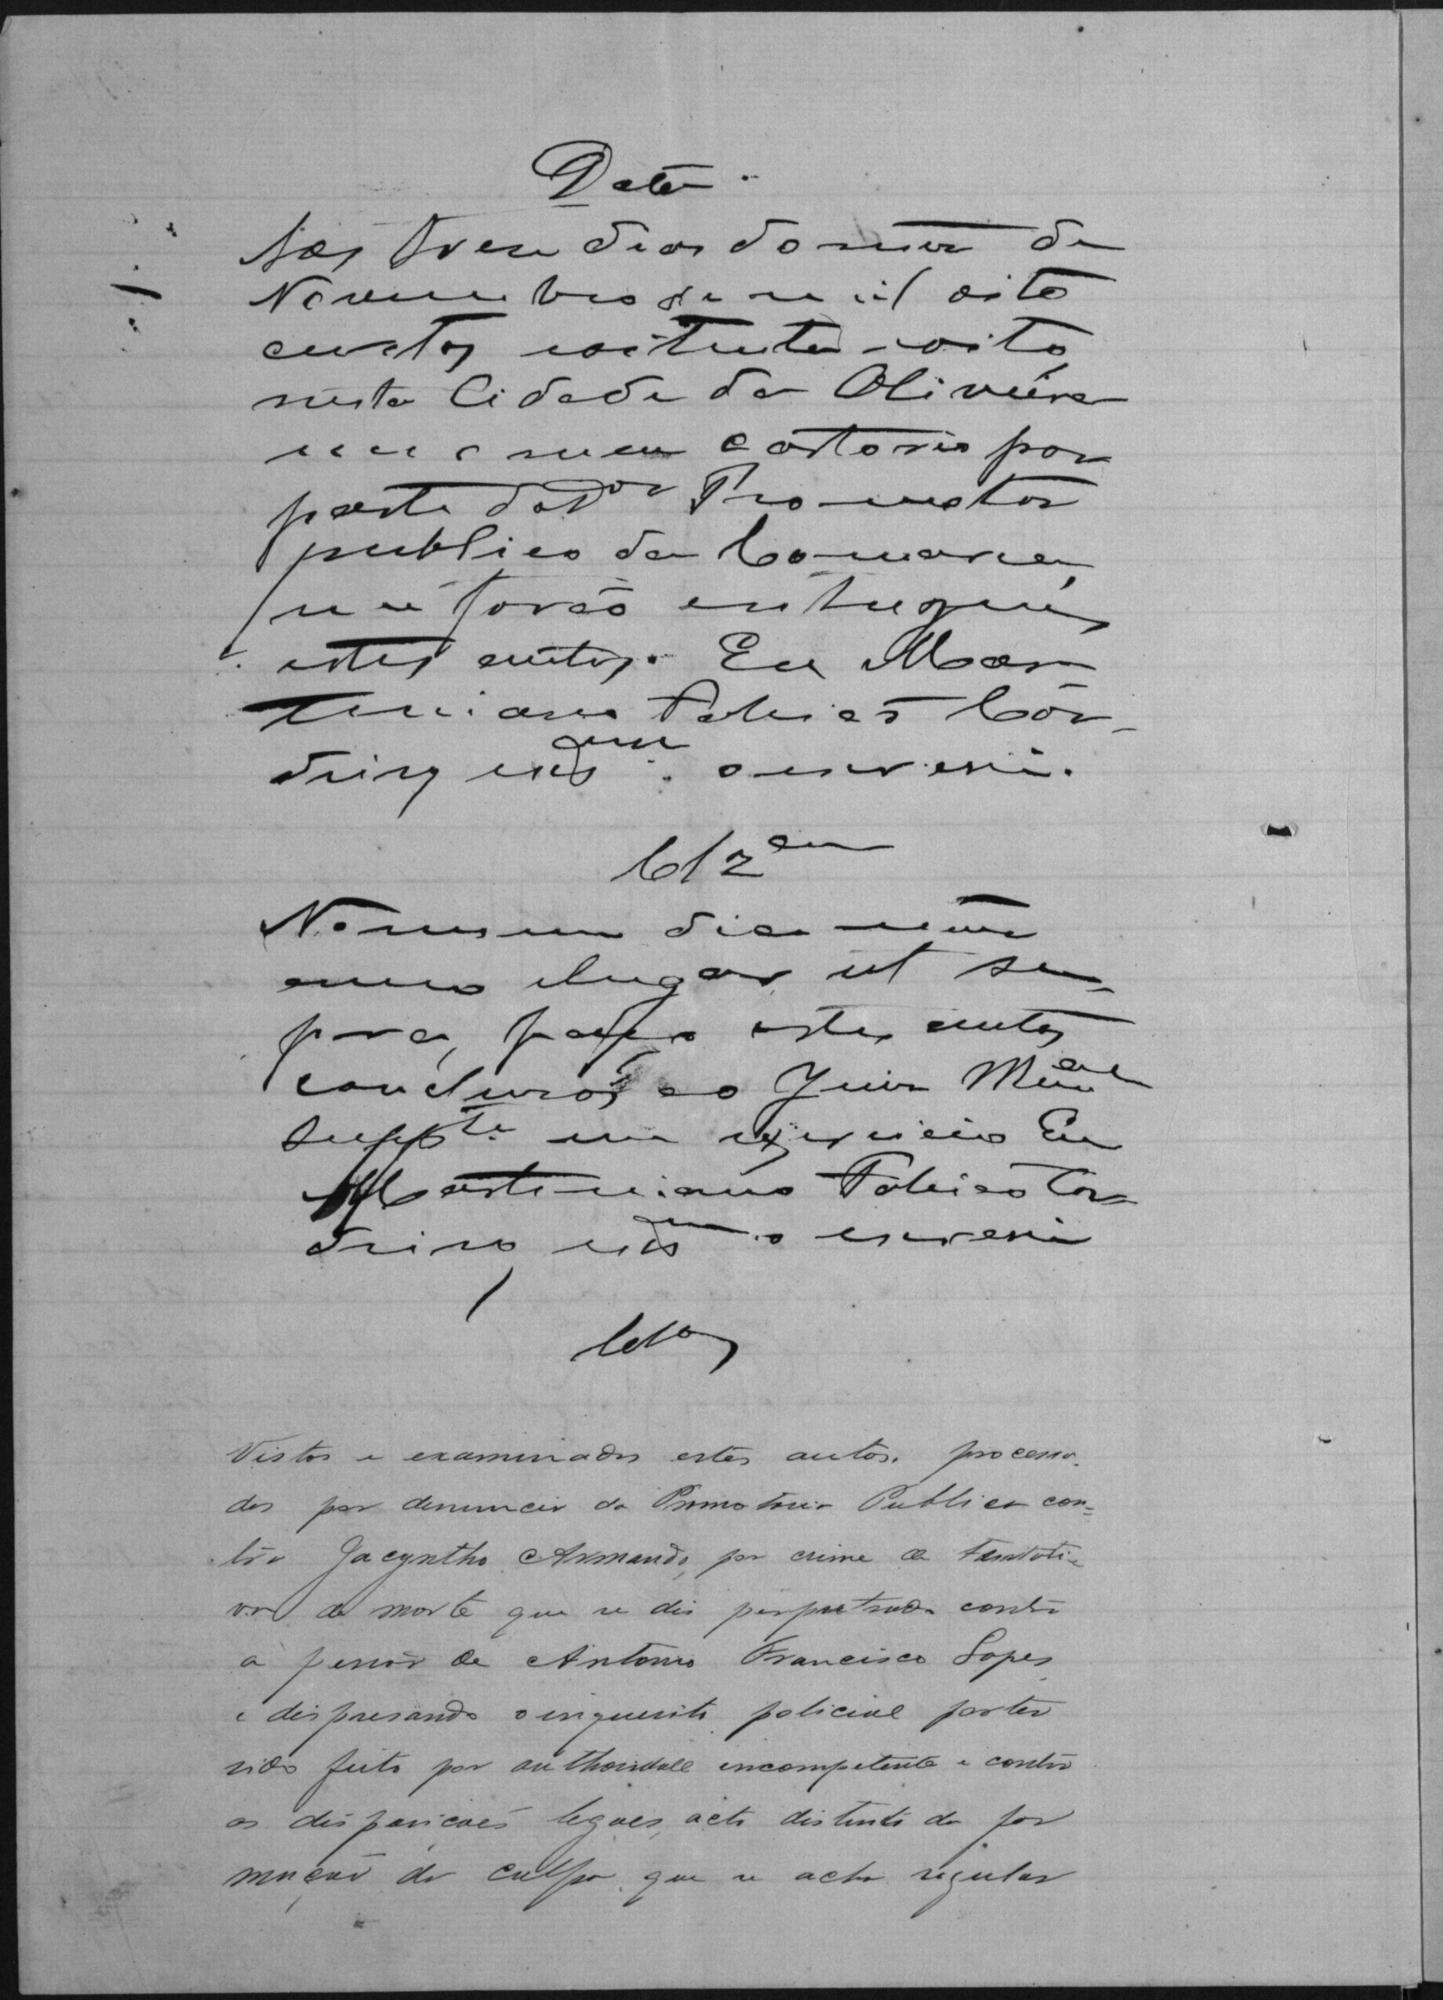 Data
Aos treze dias do mez de
Novembro de mil oito
centos e oitenta e oito
nesta Cidade da Oliveira
em o meu cartorio por
parte do Dor Promotor
publico da Comarca,
me forão entregues
estes autos. Eu Mar
tiniano
escrivam o escrevi.
Clzam
No mesmo dia mez e
anno e lugar ut su-
pra, faço estes autos
conclusos ao Juiz Municipal
Suppte em exercicio Eu
Martiniano
escrivam o escrevi
Clos
Vistos e examinados estes autos, processa-
dos por denuncia da Promotoria Publica con=
tra Jacyntho Armando, por crime de tentati-
va de morte que se diz perpetrada contra
a pessoa de Antonio Francisco Lopes
e dispresando o inquerito policial por ter
sido feito por authoridade incompetente e contra
as disposições legaes, acto distincto da for
mação da culpa, que se acha regular